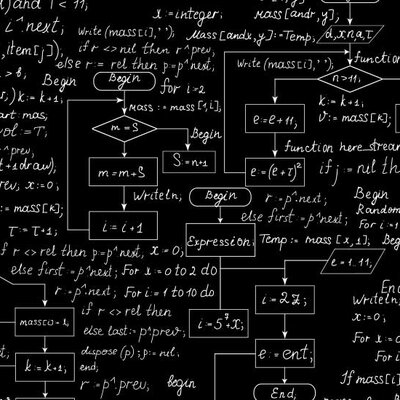 and i < 11,
x := integer;
mass[andr, y];
i^next;
Write(mass[i], ' ');
Mass[andx, y] := Temp;
d, x, n, a, T
, item[j]);
if r <> rel then r^prev,
else r := rel then p := p^next;
Write(mass[i], ' ');
function
Begin
Begin
for i := 2
n > 11,
k := k+1;
mass := mass[1, i],
k := k+1;
V := mass[k],
m = S
Begin
e := e + 11,
:= T;
^prev,
S := n+1
function here_stream
+1 draw),
m = m+S
e := (e + τ)²
if j = nil then
prev, x := 0,
Writeln;
Begin
r := p^next;
Begin
:= mass[k];
else first := p^next;
Random
For i := 1
τ := τ+1;
i := i+1
Expression,
Temp := mass [x, 1],
Begin
if r <> rel then p := p^next;
x := 0;
e = 1..11;
else first := p^next;
For x := 0 to 2 do
r := p^next;
For i := 1 to 10 do
i := 2Z;
Writeln,
x := 0;
if r <> rel then
i := 5⁷+x;
else last := p^prev;
For x
k := k+1;
dispose(p); p := nil.
e := ent;
For x
end;
r := p^prev;
begin
End;
If mass[